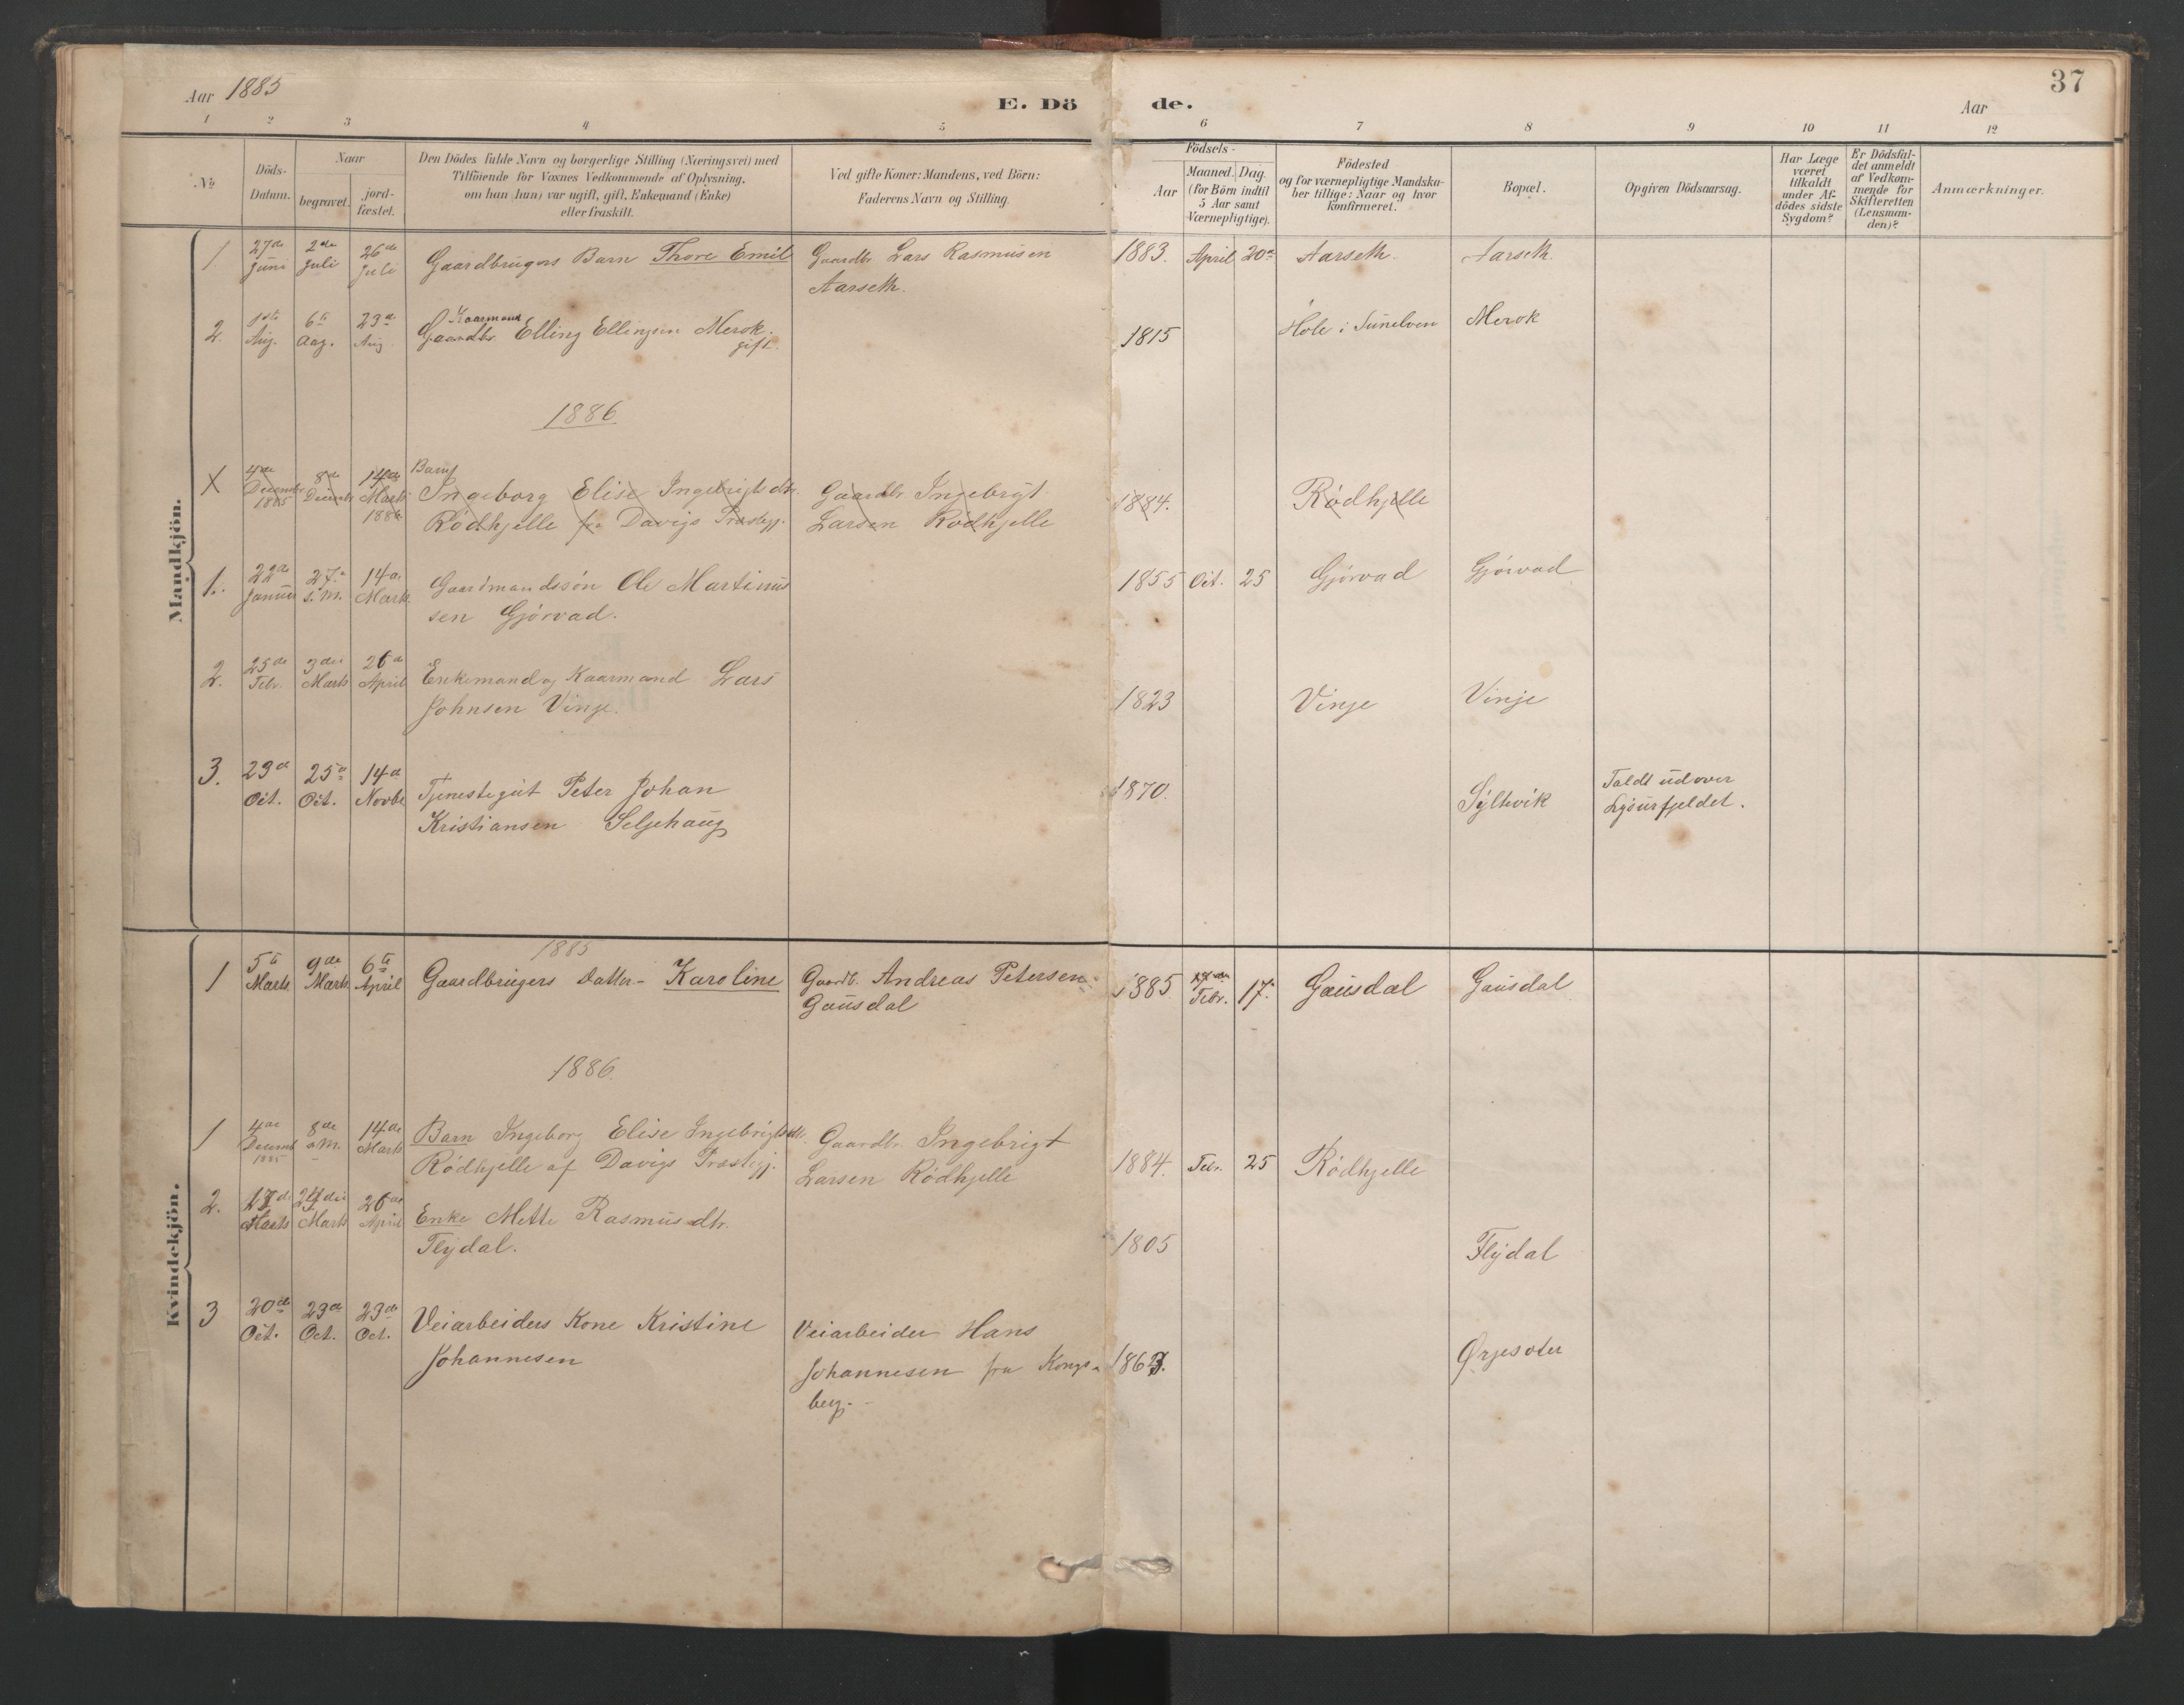 37
Aar 1885
E. Dö de.
Aar
1 2 3 4 5 6 7 8 9 10 11 12
No
Döds-
Datum.
Naar
begravet.
jord-
fæstet.
Den Dödes fulde Navn og borgerlige Stilling (Næringsvei) med
Tilföiende for Voxnes Vedkommende af Oplysning,
om han (hun) var ugift, gift, Enkemand (Enke)
eller fraskilt.
Ved gifte Koner: Mandens, ved Börn:
Faderens Navn og Stilling.
Födsels-
Aar
Maaned. Dag.
(for Börn indtil
5 Aar samt
Værnepligtige).
Födested
og for værnepligtige Mandska-
ber tillige: Naar og hvor
konfirmeret.
Bopæl.
Opgiven Dödsaarsag.
Har Læge
været
tilkaldt
under Af-
dödes sidste
Sygdom?
Er Dödsfal-
det anmeldt
af Vedkom-
mende for
Skifteretten
(Lensman-
den)?
Anmærkninger.
Mandkjön.
1. 27de Juni 2den Juli 26de Juli Gaardbrugers Barn Thore Emil Gaardbr Lars Rasmusen
Aarseth.
1883. April 20de Aarseth. Aarseth.
2. 1ste Aug. 6te Aug. 23de Aug Kaarmand
Gaardbr. Elling Ellingsen Merok.
gift.
1815 Hole i Sunelven Merok
1886
X 4de December 1885 8de December 14de Marts 1886 Barn
Ingeborg Elise Ingebrigtsdtr.
Rödhjelle fra Davigs Præstegj.
Gaardbr Ingebrigt
Larsen Rödhjelle
1884. Rödhjelle
1. 22de Januar 27de s. M. 14de Marts. Gaardmandssön Ole Martinus
sen Gjörvad.
1855 Oct. 25 Gjörvad Gjörvad
2. 25de Febr. 3die Marts 26de April Enkemand og Kaarmand Lars
Johnsen Vinje.
1823 Vinje Vinje
3. 23de Oct. 25de Oct. 14de Novbr Tjenestegut Peter Johan
Kristiansen Seljehaug
1870. Syltevik Faldt udover
Lysurfjeldet.
Kvindekjön.
1885
1 5te Marts 9de Marts 6te April Gaardbrugers Datter - Karoline Gaardb. Andreas Petersen
Gausdal
1885 Febr. 17. Gausdal Gausdal
1886
1 4de Decemb 1885 8de s. M. 14de Marts Barn Ingeborg Elise Ingebrigtsdtr. Gaardbr. Ingebrigt
Rödhjelle af Davigs Præstegj. Larsen Rödhjelle
1884. Febr. 25 Rödhjelle
2. 17de Marts 24de Marts 26de April Enke Mette Rasmusdtr.
Flydal.
1805 Flydal
3 20de Oct. 23de Oct. 23de Oct. Veiarbeiders Kone Kristine
Johannesen
Veiarbeider Hans
Johannesen fra Kongs-
berg. -
1863. Ørjesæter